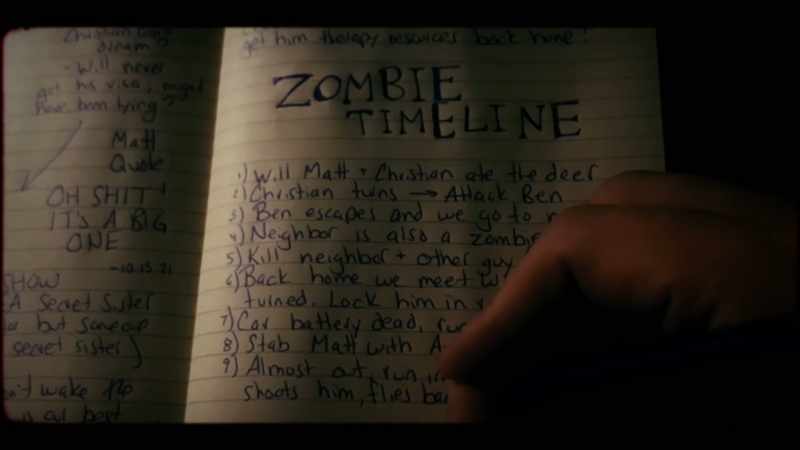 dream?
- Will never
got his visa, might
have been lying?
Matt
Quote
OH SHIT!
IT'S A BIG
ONE
-10.15.21
SHOW
A Secret Sister
but
secret sister
wake the
get him therapy resources back home!
ZOMBIE
TIMELINE
1) Will Matt + Christian ate the deer
2) Christian turns → Attack Ben
3) Ben escapes and we go to
4) Neighbor is also a zombie
5) Kill neighbor + other guy
6) Back home we meet
turned. Lock him in
7) Car battery dead, run
8) Stab Matt with
9) Almost out, run
shoots him, flies